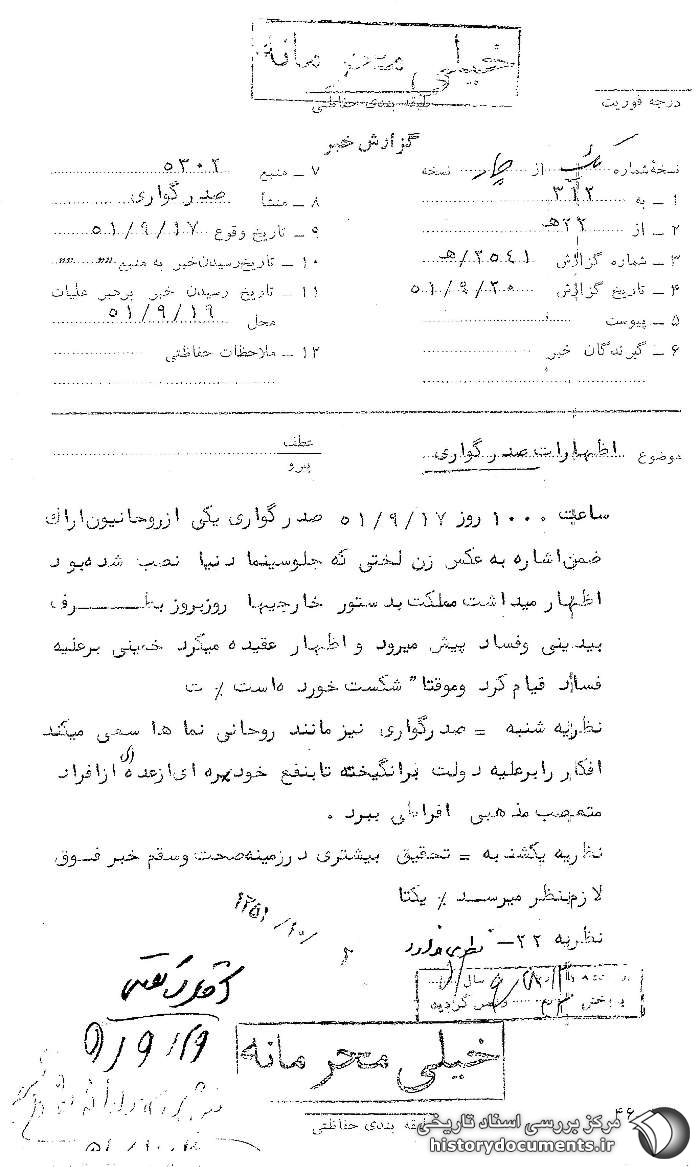 خیلی محرمانه
طبقه بندی حفاظتی
درجه فوریت
گزارش خبر
نسخه شماره یک از چهار نسخه
۱ – به ۳۱۲
۲ – از ۲۲ هـ
۳ – شماره گزارش ۲۵۴۱/هـ
۴ – تاریخ گزارش ۵۱/۹/۲۰
۵ – پیوست
۶ – گیرندگان خبر
۷ – منبع ۵۳۰۲
۸ – منشأ صدرگواری
۹ – تاریخ وقوع ۵۱/۹/۱۷
۱۰ – تاریخ رسیدن خبر به منبع " "
۱۱ – تاریخ رسیدن خبر برهبر عملیات
محل ۵۱/۹/۱۹
۱۲ – ملاحظات حفاظتی
موضوع اظهارات صدرگواری
عطف
پیرو
ساعت ۱۰۰۰ روز ۵۱/۹/۱۷ صدرگواری یکی از روحانیون اراک
ضمن اشاره به عکس زن لختی که جلوسینما دنیا نصب شده بود
اظهار میداشت مملکت بدستور خارجیها روزبروز بطرف
بیدینی وفساد پیش میرود و اظهار عقیده میکرد خمینی برعلیه
فساد قیام کرد وموقتا" شکست خورده است ٪ ت
نظریه شنبه = صدرگواری نیز مانند روحانی نماها سعی میکند
افکار را برعلیه دولت برانگیخته تابنفع خود بهره ای ازعده ای ازافراد
متعصب مذهبی افراطی ببرد .
نظریه یکشنبه = تحقیق بیشتری درزمینه صحت وسقم خبر فوق
لازم بنظر میرسد ٪ یکتا
نظریه ۲۲– نظری ندارد
۱۳۵۱/۱۰/
۵۱/۹/۲۹
خیلی محرمانه
طبقه بندی حفاظتی
۴۶
مرکز بررسی اسناد تاریخی
historydocuments.ir